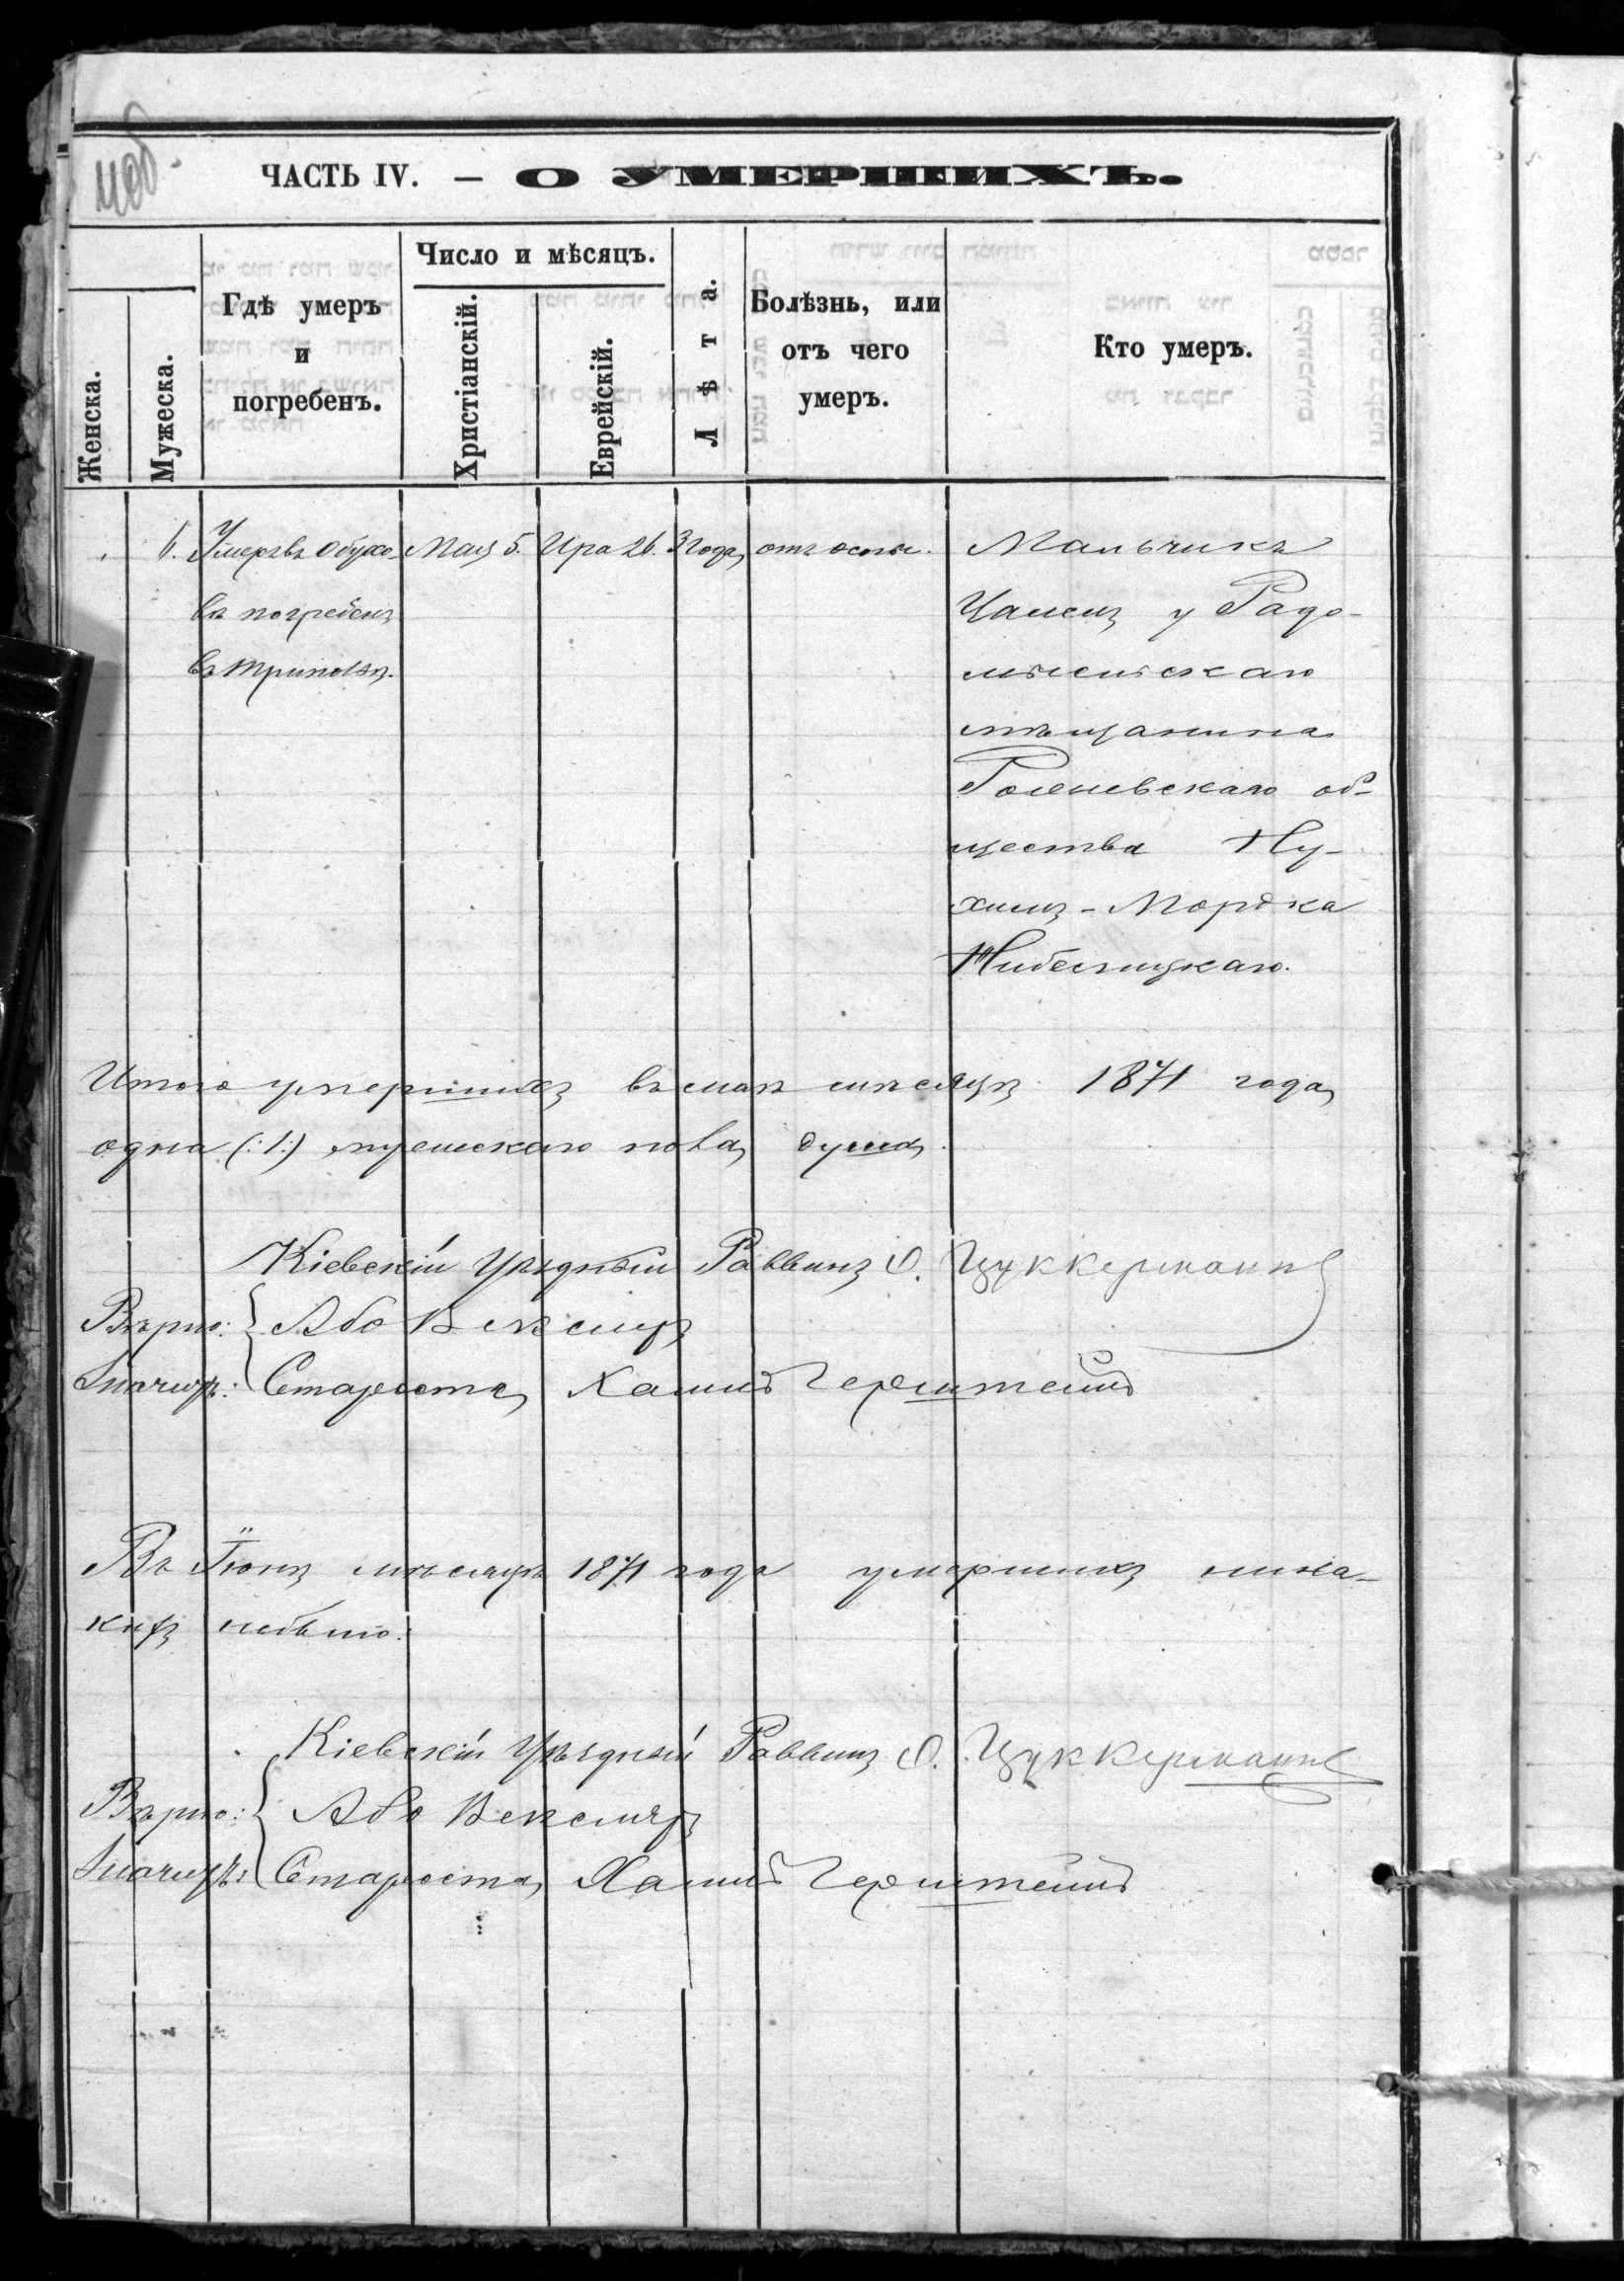 ЧАСТЬ IV. — О УМЕРШИХЪ.
Женска.
Мужеска.
Гдѣ умеръ
и
погребенъ.
Число и мѣсяцъ.
Христіанскій.
Еврейскій.
Лѣта.
Болѣзнь, или
отъ чего
умеръ.
Кто умеръ.
Умеръ въ Обухо-
въ погребенъ
въ Триполѣ.
Мая 5.
Ира 26.
3 года
отъ оспы.
Мальчикъ
у Радо-
мысльскаго
мѣщанина
об-
щества Ну-
химъ-Мордка
Итого умершихъ въ маѣ мѣсяцѣ 1871 года
одна (:1:) мужескаго пола душа.
Кіевскій Уѣздный Раввинъ О. Цуккерманъ
Вѣрно: Або Векслеръ
Староста Хаимъ Герштейнъ
Въ Іюнѣ мѣсяцѣ 1871 года умершихъ ника-
кихъ небыло.
Кіевскій Уѣздный Раввинъ О. Цуккерманъ
Вѣрно: Або Векслеръ
Староста Хаимъ Герштейнъ